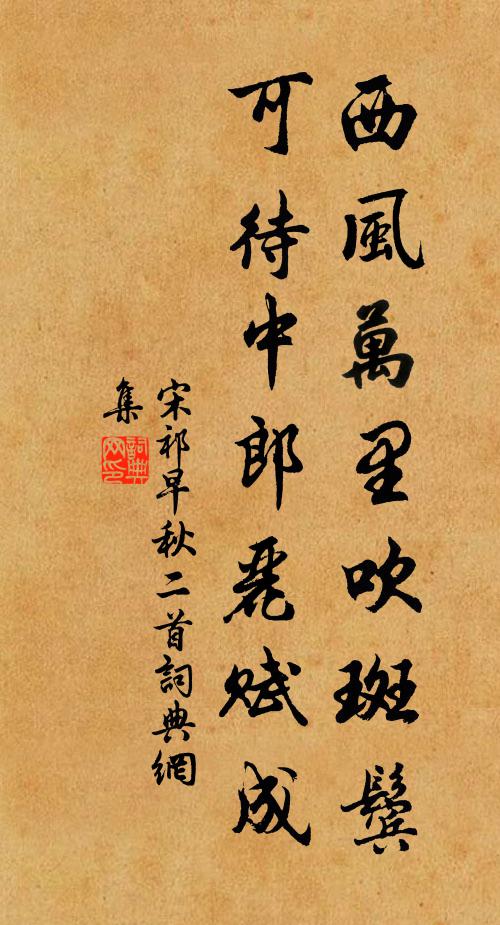 西風萬里吹斑鬢
可待中郎麗賦成
宋祁早秋二首詞典網
集
詞典網印